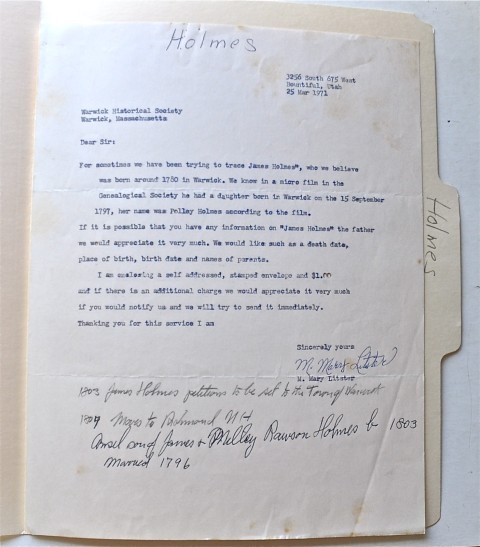 Holmes
3256 South 675 West
Bountiful, Utah
25 Mar 1971
Warwick Historical Society
Warwick, Massachusetta
Dear Sir:
For sometime we have been trying to trace James Holmes", who we believe
was born around 1780 in Warwick. We know in a micro film in the
Genealogical Society he had a daughter born in Warwick on the 15 September
1797, her name was Polley Holmes according to the film.
If it is possible that you have any information on "James Holmes" the father
we would appreciate it very much. We would like such as death date,
place of birth, birth date and names of parents.
I am enclosing a self addressed, stamped envelope and $1.00
and if there is an additional charge we would appreciate it very much
if you would notify us and we will try to send it immediately.
Thanking you for this service I am
Sincerely yours
M. Mary Litster
M. Mary Litster
1803 James Holmes petitions to be set to the Town of Warwick
1804 Moves to Richmond NH
Ansel son of James + Melley Rawson Holmes b 1803
Married 1796
Holmes